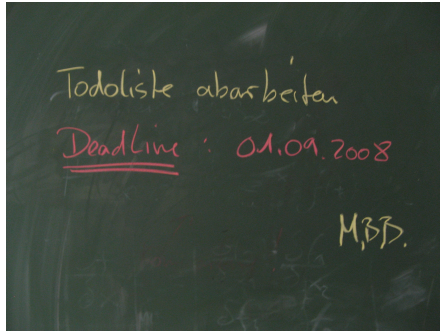 Todoliste abarbeiten
Deadline : 01.09.2008
M.B.B.